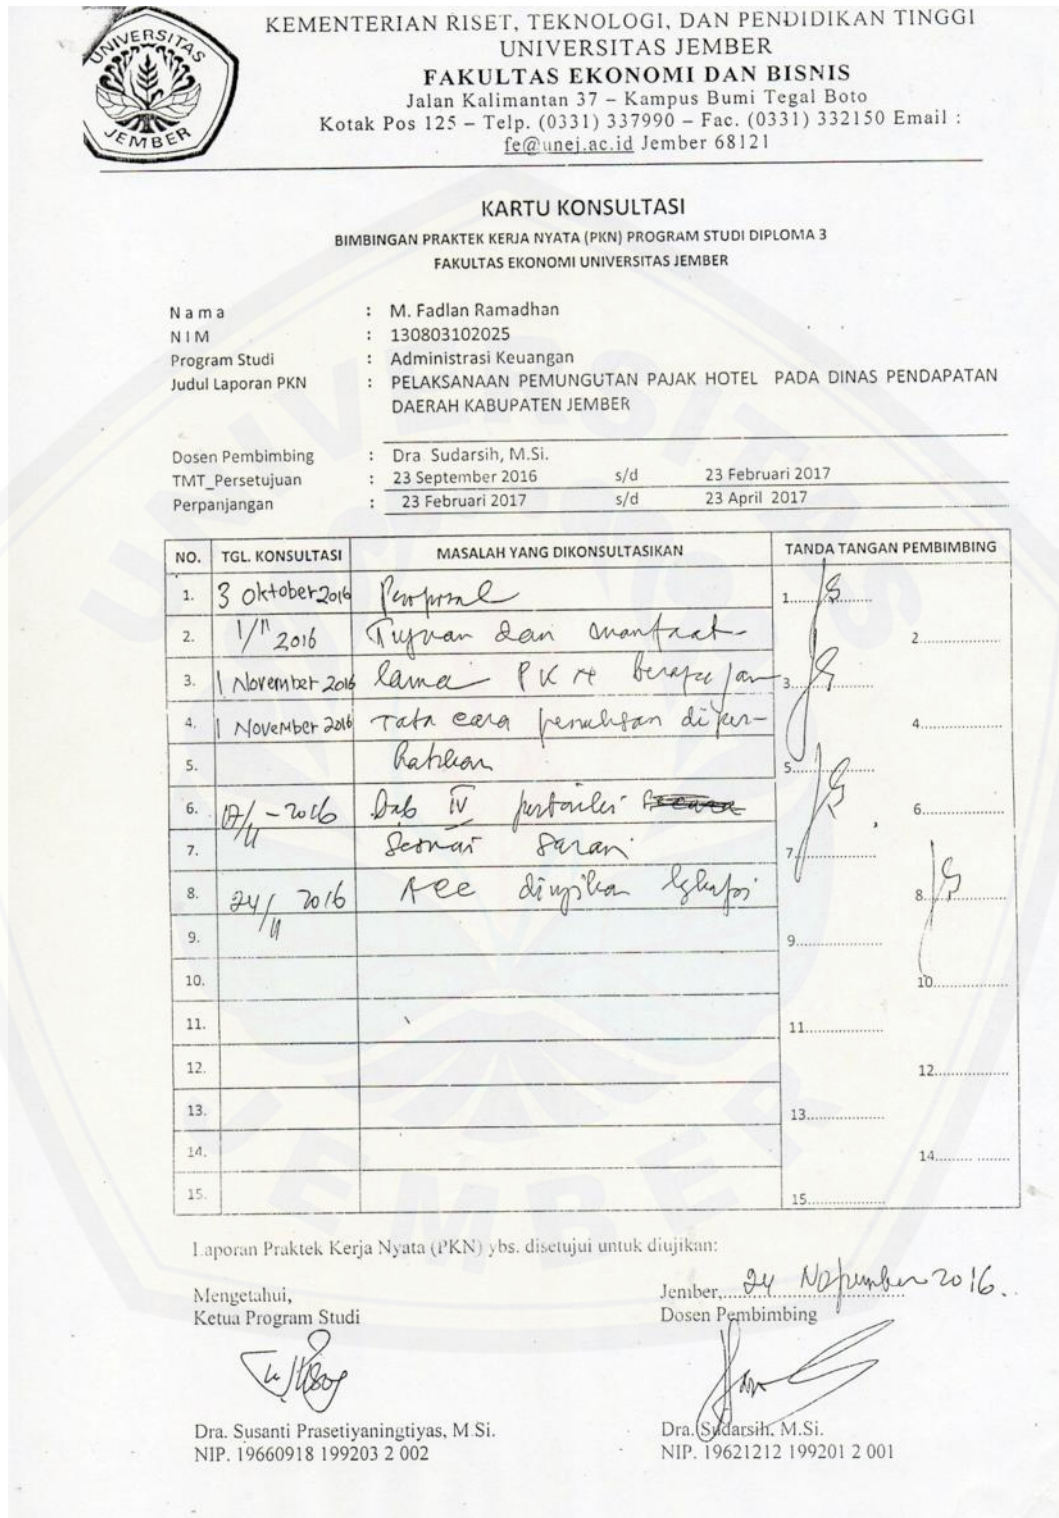 UNIVERSITAS
JEMBER
KEMENTERIAN RISET, TEKNOLOGI, DAN PENDIDIKAN TINGGI
UNIVERSITAS JEMBER
FAKULTAS EKONOMI DAN BISNIS
Jalan Kalimantan 37 – Kampus Bumi Tegal Boto
Kotak Pos 125 – Telp. (0331) 337990 – Fac. (0331) 332150 Email :
fe@unej.ac.id Jember 68121
KARTU KONSULTASI
BIMBINGAN PRAKTEK KERJA NYATA (PKN) PROGRAM STUDI DIPLOMA 3
FAKULTAS EKONOMI UNIVERSITAS JEMBER
N a m a : M. Fadlan Ramadhan
N I M : 130803102025
Program Studi : Administrasi Keuangan
Judul Laporan PKN : PELAKSANAAN PEMUNGUTAN PAJAK HOTEL PADA DINAS PENDAPATAN
DAERAH KABUPATEN JEMBER
Dosen Pembimbing : Dra Sudarsih, M.Si.
TMT_Persetujuan : 23 September 2016 s/d 23 Februari 2017
Perpanjangan : 23 Februari 2017 s/d 23 April 2017
NO. TGL. KONSULTASI MASALAH YANG DIKONSULTASIKAN TANDA TANGAN PEMBIMBING
1. 3 Oktober 2016 Proposal 1..........
2. 1/11 2016 Tujuan dan manfaat 2..........
3. 1 November 2016 lama PKN berapa jam 3..........
4. 1 November 2016 Tata cara penulisan diper- 4..........
5. hatikan 5..........
6. 17/11 - 2016 bab IV perbaiki 6..........
7. Sesuai Saran 7..........
8. 24/11 2016 Acc diujikan 8..........
9. 9..........
10. 10..........
11. 11..........
12. 12..........
13. 13..........
14. 14..........
15. 15..........
Laporan Praktek Kerja Nyata (PKN) ybs. disetujui untuk diujikan:
Jember, 24 Nopember 2016.
Mengetahui,
Ketua Program Studi Dosen Pembimbing
Dra. Susanti Prasetiyaningtiyas, M.Si. Dra. Sudarsih, M.Si.
NIP. 19660918 199203 2 002 NIP. 19621212 199201 2 001